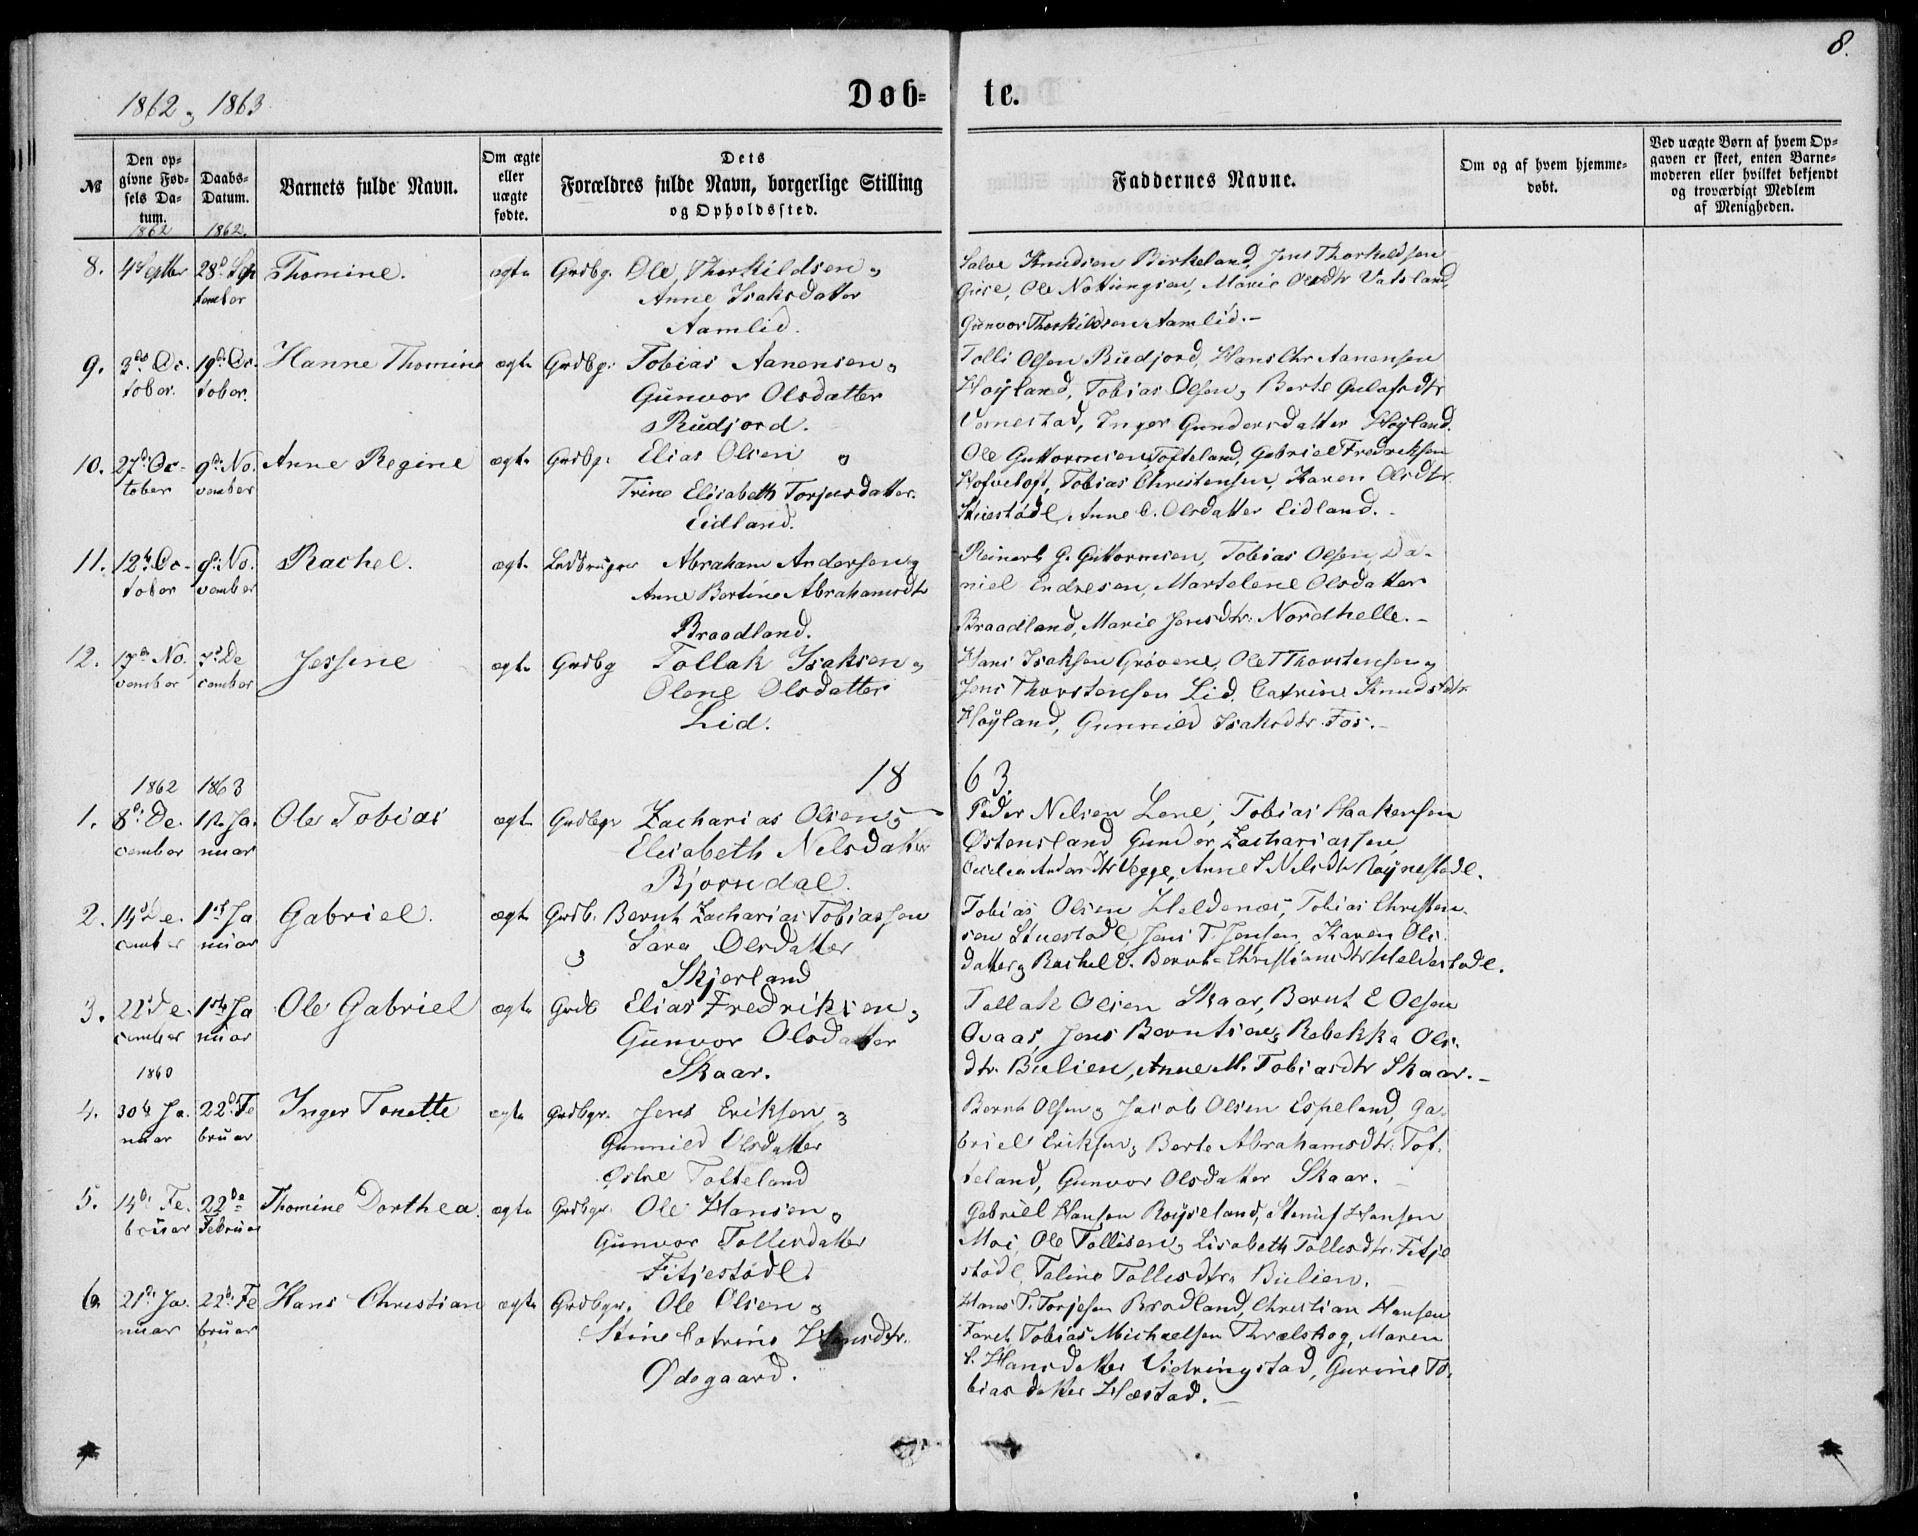 8.
1862 og 1863
Døb-
te.
№
Den opgivne Fødsels Datum.
Daabs-Datum.
Barnets fulde Navn.
Om ægte eller uægte fødte.
Dets Forældres fulde Navn, borgerlige Stilling og Opholdssted.
Faddernes Navne.
Om og af hvem hjemmedøbt.
Ved uægte Børn af hvem Opgaven er skeet, enten Barnemoderen eller hvilket bekjendt og troværdigt Medlem af Menigheden.
1862 1862.
8. 4 Septbr 28d Sep Thomine. ægte Grdbg. Ole Thorkildsen og
tember Anne Isaksdatter
Aamlid.
Salve Knudsen Birkeland, Jens Thorkeldsen
Ole Nottiengsen, Marie Olsdtr Vatsland,
Gunvor Thorkildsen Aamlid.-
9. 3de Oc- 19de Oc- Hanne Thomine ægte Grdbg. Tobias Aanensen og
tober. tober. Gunvor Olsdatter
Rudjord.
Tolli Olsen Rudjord, Hans Chr Aanensen
Høyland, Tobias Olsen og Berte
Vanestad, Inger Gundersdatter Høyland.
10. 27de Oc- 9de No- Anne Regine ægte Grdbg. Elias Olsen og
tober vember Trine Elisabeth Torjusdatter
Eidland.
Ole Guttormsen Tofteland, Gabriel Fredriksen
Tobias Christensen, Karen Olsdtr
Stuestødl, Anne C. Olsdatter Eidland.-
11. 12te Oc- 9de No- Rachel. ægte Ledbruger Abraham Andersen og
tober vember Anne Bertine Abrahamsdtr
Braadland.
Reinert G. Guttormsen, Tobias Olsen, Da-
niel Endresen, Martelene Olsdatter
Braadland, Marie Jensdtr. Nordhelle.-
12. 17de No. 7de De Jessine ægte Grdbg Tollak Isaksen og
vember cember Olene Olsdatter
Lid.
Hans Isaksen Grøvene, Ole T Thorstensen og
Jens Thorstensen Lid, Catrine Knudsdtr
Høyland, Gunnild Isaksdtr. Fos.-
1862 1863 18 63.
1. 8de De- 1ste Ja- Ole Tobias ægte Grdbgr Zacharias Olsen og
cember nuar Elisabeth Nilsdatter
Bjorndal.
Peder Nilsen Lene, Tobias Haakensen
Østensland, Gunder Zachariassen,
Andersdtr Vegge, Anne S Nilsdtr Røynestødl.
2. 14de De- 1ste Ja Gabriel. ægte Grdb. Bernt Zacharias Tobiassen
cember nuar og Sara Olsdatter
Skjerland
Tobias Olsen Heldenes, Tobias Christen-
sen Stuestødl, Jens T. Jensen, Karen Ols-
datter og Rachel B. Bernt-Christiansdtr Heldestødl.
3. 22de De- 1ste Ja Ole Gabriel ægte Grdb Elias Fredriksen og
cember nuar Gunvor Olsdatter
Skaar.
Tallak Olsen Skaar, Bernt E Olsen
Qvaas, Jens Berntsen og Rebekka Ols-
dtr. Bielien, Anne M. Tobiasdtr Skaar.-
1860
4. 30te Ja- 22de Fe Inger Tonette ægte Grdbgr. Jens Eriksen og
nuar bruar Gunnild Olsdatter
Østre Tofteland
Bernt Olsen og Jacob Olsen Espeland, Ga-
briel Eriksen og Berte Abrahamsdtr. Tof-
teland, Gunvor Olsdatter Skaar.-
5. 14de Fe- 22de Thomine Dorthea. ægte Grdbgr. Ole Hansen og
bruar Februar Gunvor Tollisdatter
Fitjestødl.
Gabriel Hansen Røyseland, Hansen
Moi, Ole Tollisen og Lisabeth Tollisdtr. Fitje
stødl, Taline Tollisdtr. Bielien.-
6. 21de Ja- 22de Fe Hans Christian ægte Grdbgr. Ole Olsen og
nuar bruar Stine Catrine Hansdtr.
Ødegaard.
Hans T. Torjesen Bradland, Christian Hansen
Faret, Tobias Michaelsen Thrælskog, Maren
C. Hansdatter Vidringstad, Gurine To-
biasdatter Hæstad.-